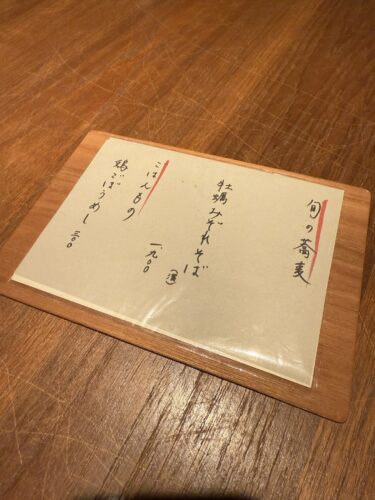 旬の蕎麦
牡蠣みぞれそば
（温）
一、九〇〇
ごはんもの
鶏ごぼうめし 三〇〇